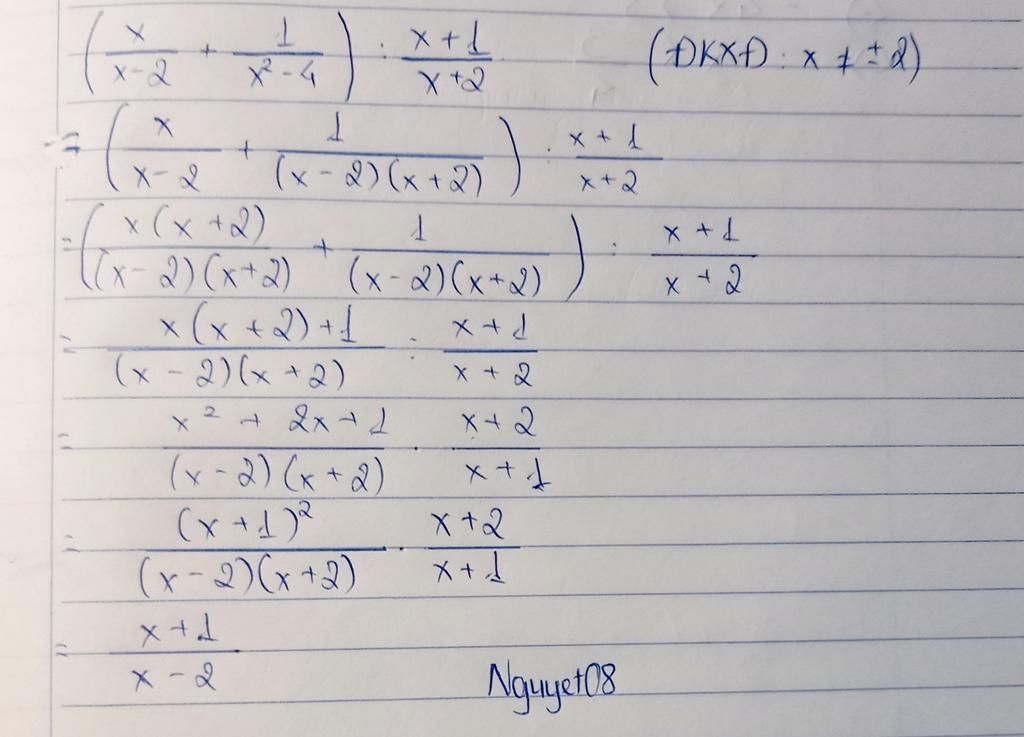 (x/(x-2) + 1/(x²-4)) : (x+1)/(x+2) (ĐKXĐ: x ≠ ±2)
= (x/(x-2) + 1/((x-2)(x+2))) : (x+1)/(x+2)
= (x(x+2)/((x-2)(x+2)) + 1/((x-2)(x+2))) : (x+1)/(x+2)
= (x(x+2)+1)/((x-2)(x+2)) : (x+1)/(x+2)
= (x²+2x+1)/((x-2)(x+2)) . (x+2)/(x+1)
= (x+1)²/((x-2)(x+2)) . (x+2)/(x+1)
= (x+1)/(x-2)
Nguyet08